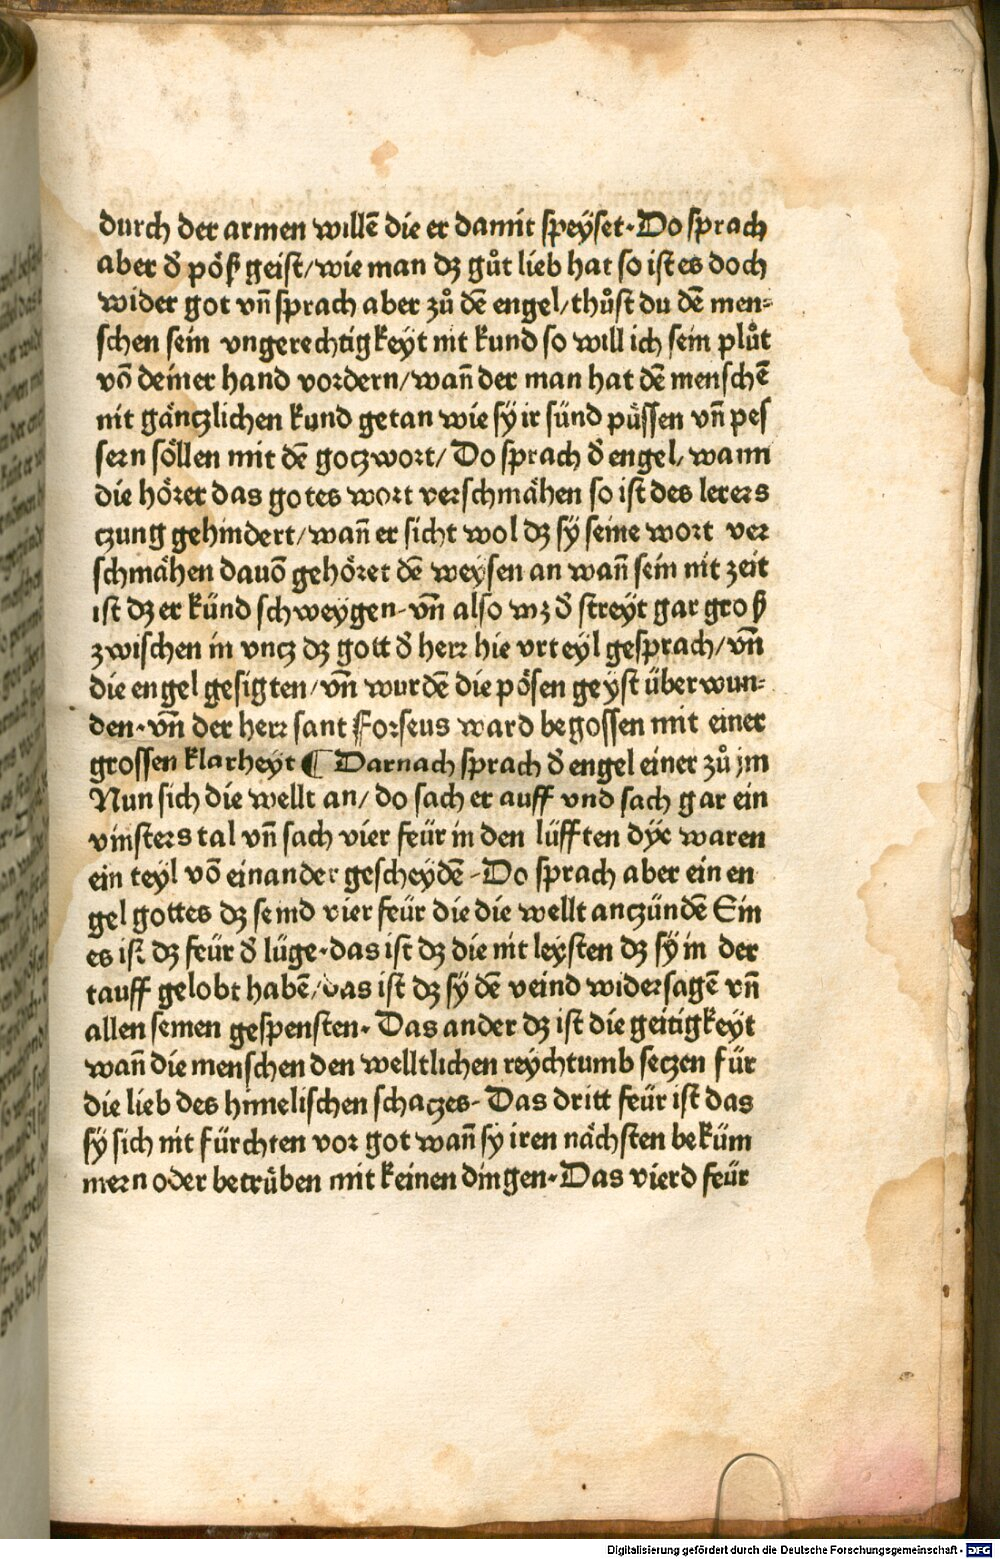 durch der armen willē die er damit speyset·Do sprach
aber đ pöß geist/wie man dꝫ gůt lieb hat so ist es doch
wider got vn̄ sprach aber zů dē engel/thůst du dē men⸗
schen sein vngerechtigkeyt nit kund so will ich sein plůt
vō deiner hand vordern/wan̄ der man hat dē menschē
nit gänczlichen kund getan wie sÿ ir sünd püssen vn̄ pes
sern söllen mit dē goczwort/Do sprach đ engel/wann
die hörer das gotes wort verschmähen so ist des lerers
czung gehindert/wan̄ er sicht wol dꝫ sÿ seine wort ver
schmähen dauō gehöret dē weysen an wan̄ sein nit zeit
ist dꝫ er künd schweygen·vn̄ also wꝫ đ streyt gar groß
zwischen in vncz dꝫ gott đ herr hie vrteyl gesprach/vn̄
die engel gesigten/vn̄ wurdē die pösen geyst überwun⸗
den·vn̄ der herr sant Forseus ward begossen mit einer
grossen klarheyt ¶ Darnach sprach đ engel einer zů jm
Nun sich die wellt an/do sach er auff vnd sach gar ein
vinsters tal vn̄ sach vier feür in den lüfften dÿe waren
ein teyl vō einander gescheydē·Do sprach aber ein en
gel gottes dꝫ seind vier feür die die wellt anczündē Ein
es ist dꝫ feür đ lüge·das ist dꝫ die nit leysten dꝫ sÿ in der
tauff gelobt habē/das ist dꝫ sÿ dē veind widersagē vn̄
allen seinen gespensten·Das ander dꝫ ist die geitigkeyt
wan̄ die menschen den welltlichen reychtumb seczen für
die lieb des himelischen schaczes·Das dritt feür ist das
sÿ sich nit fürchten vor got wan̄ sy iren nächsten beküm
mern oder betrüben mit keinen dingen·Das vierd feür
Digitalisierung gefördert durch die Deutsche Forschungsgemeinschaft - DFG